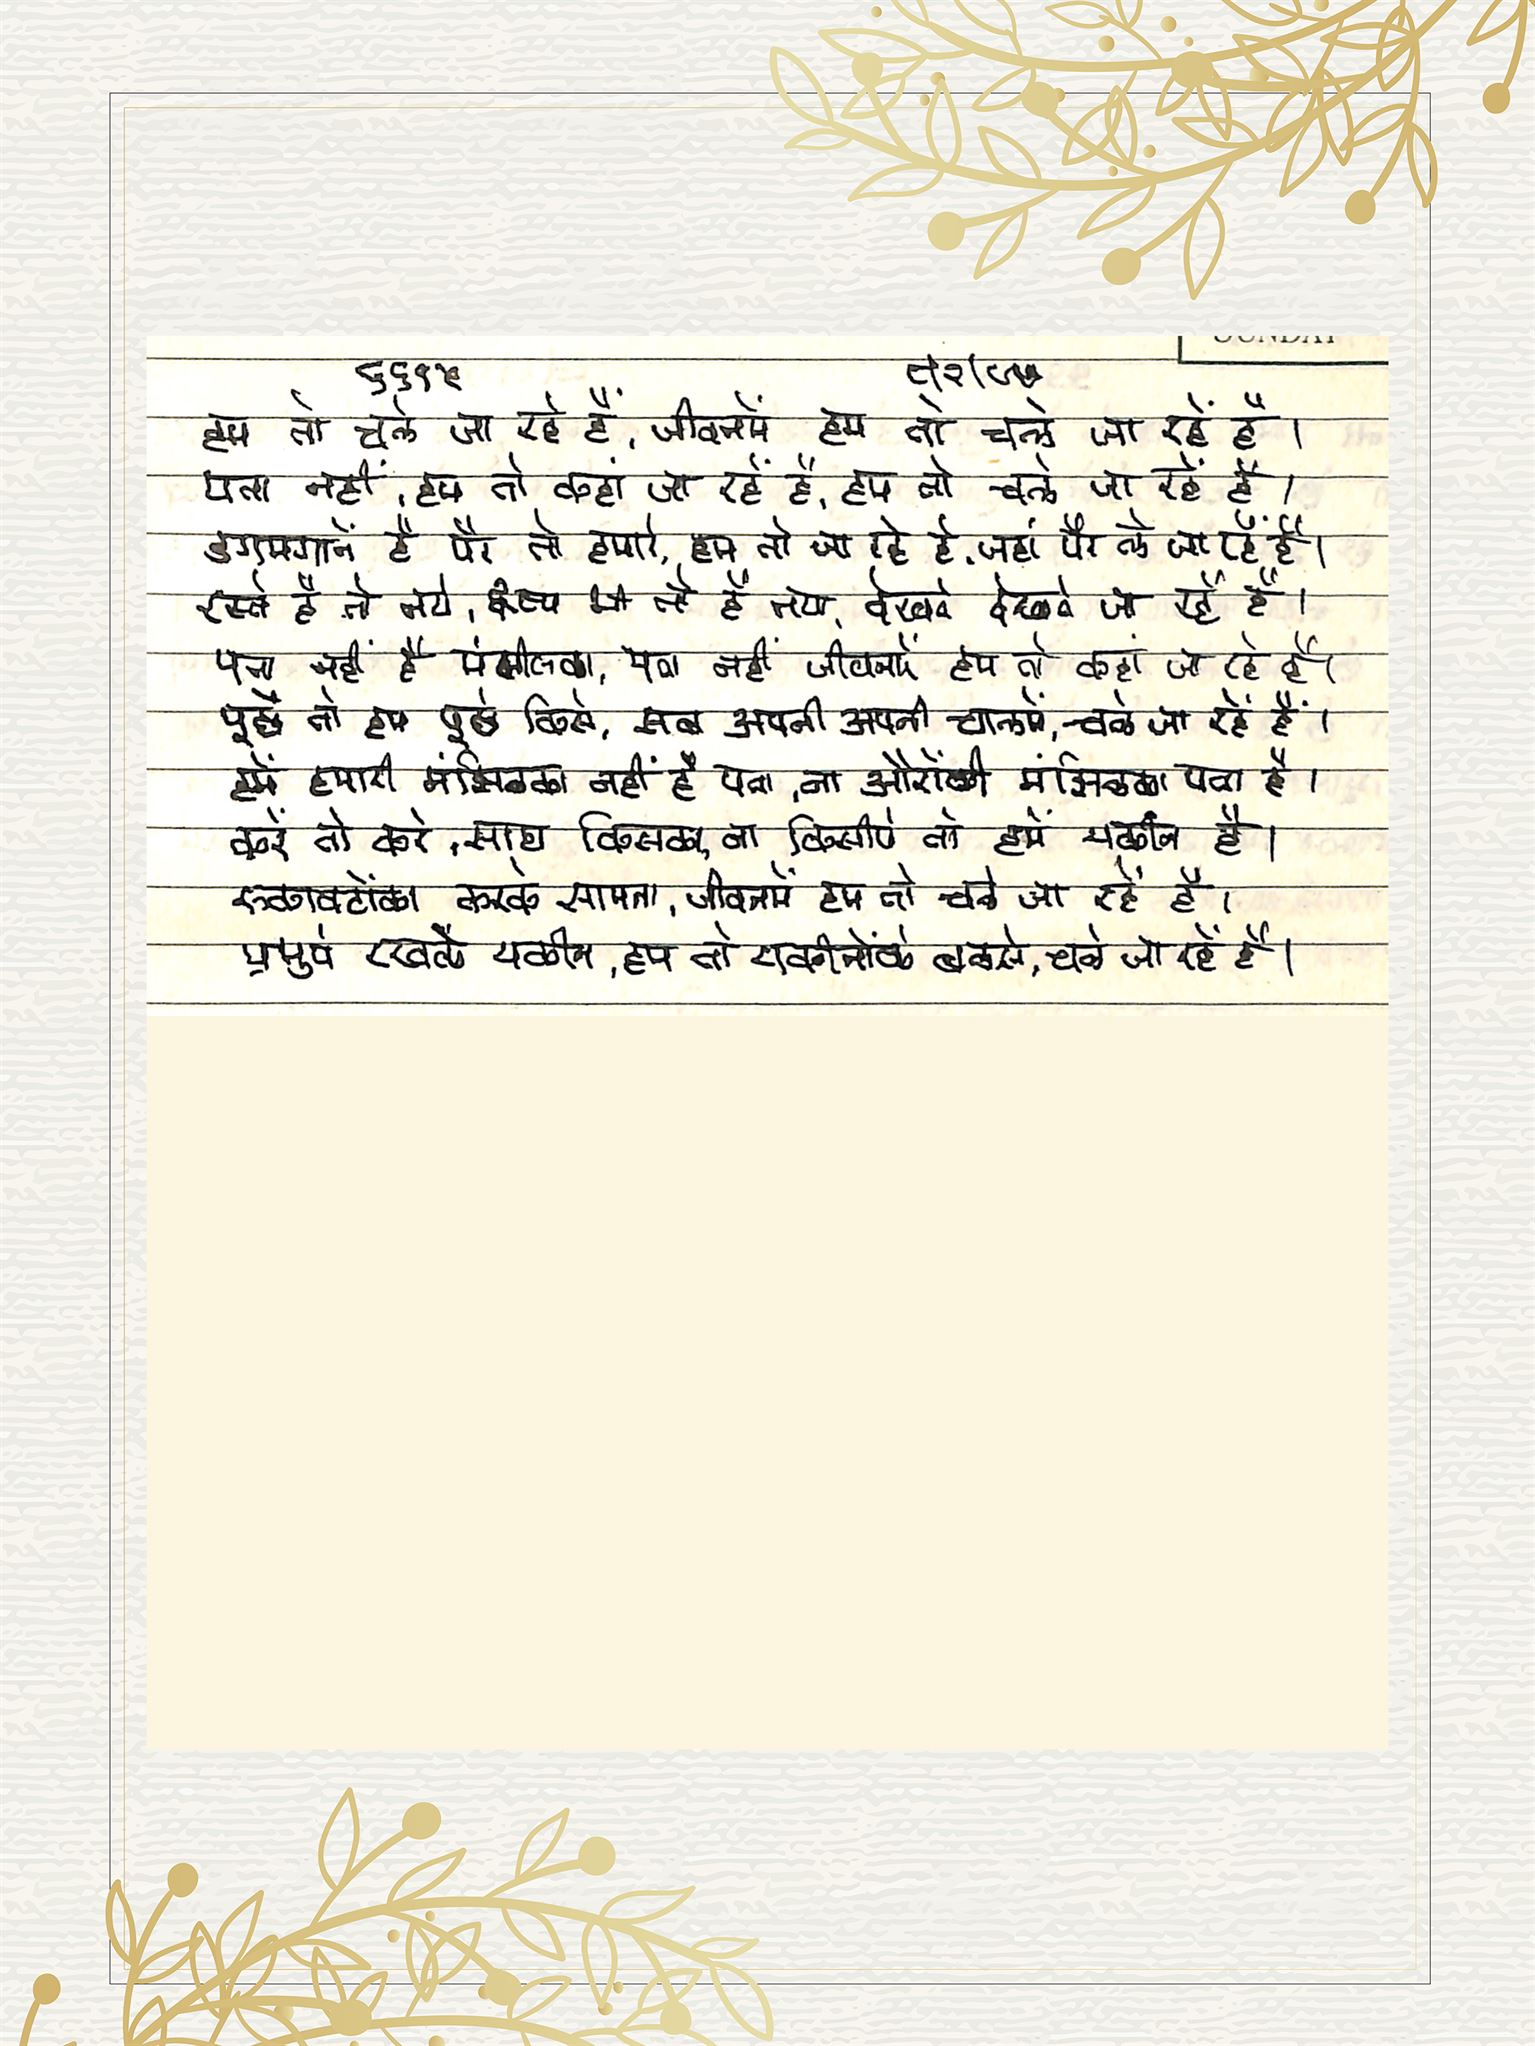 SUNDAY
हम तो चले जा रहे हैं, जीवनमें हम तो चले जा रहें है।
पता नहीं, हम तो कहां जा रहें है, हम तो चले जा रहें है।
डगमगातें है पैर तो हमारे, हम तो जा रहे है, जहां पैर ले जा रहें है।
रस्ते है तो नये, तो है नया, देखते देखते जा रहें है।
पता नहीं है मंझीलका, पता नहीं जीवनमें हम तो कहां जा रहे है।
पूछें तो हम पूछे किसे, सब अपनी अपनी चालमें, चले जा रहें हैं।
हमें हमारी मंझिलका नहीं है पता, ना औरोंकी मंझिलका पता है।
करें तो करे, साथ किसका, ना किसीपे तो हमें यकीन है।
रुकावटोंका करके सामना, जीवनमें हम तो चले जा रहें है।
प्रभुपे रखके यकीन, हम तो यकीनोंके बलसे, चले जा रहें है।